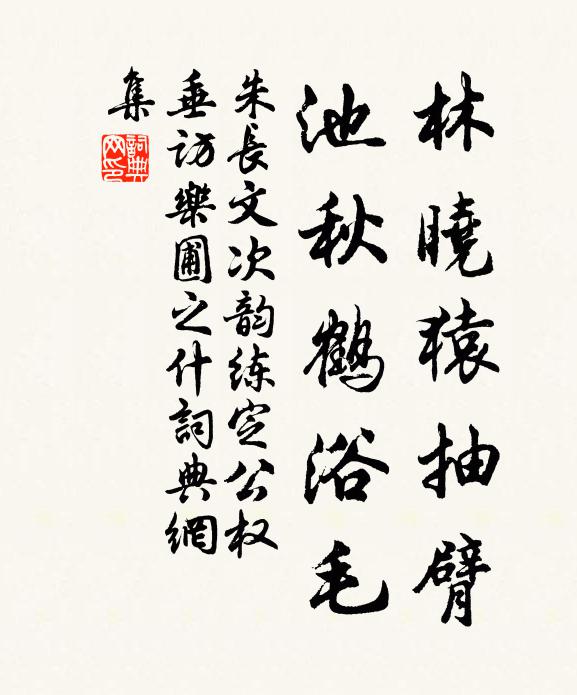 林曉猿抽臂
池秋鶴浴毛
朱長文次韵练定公权
垂访樂圃之什詞典網
集
詞典網印